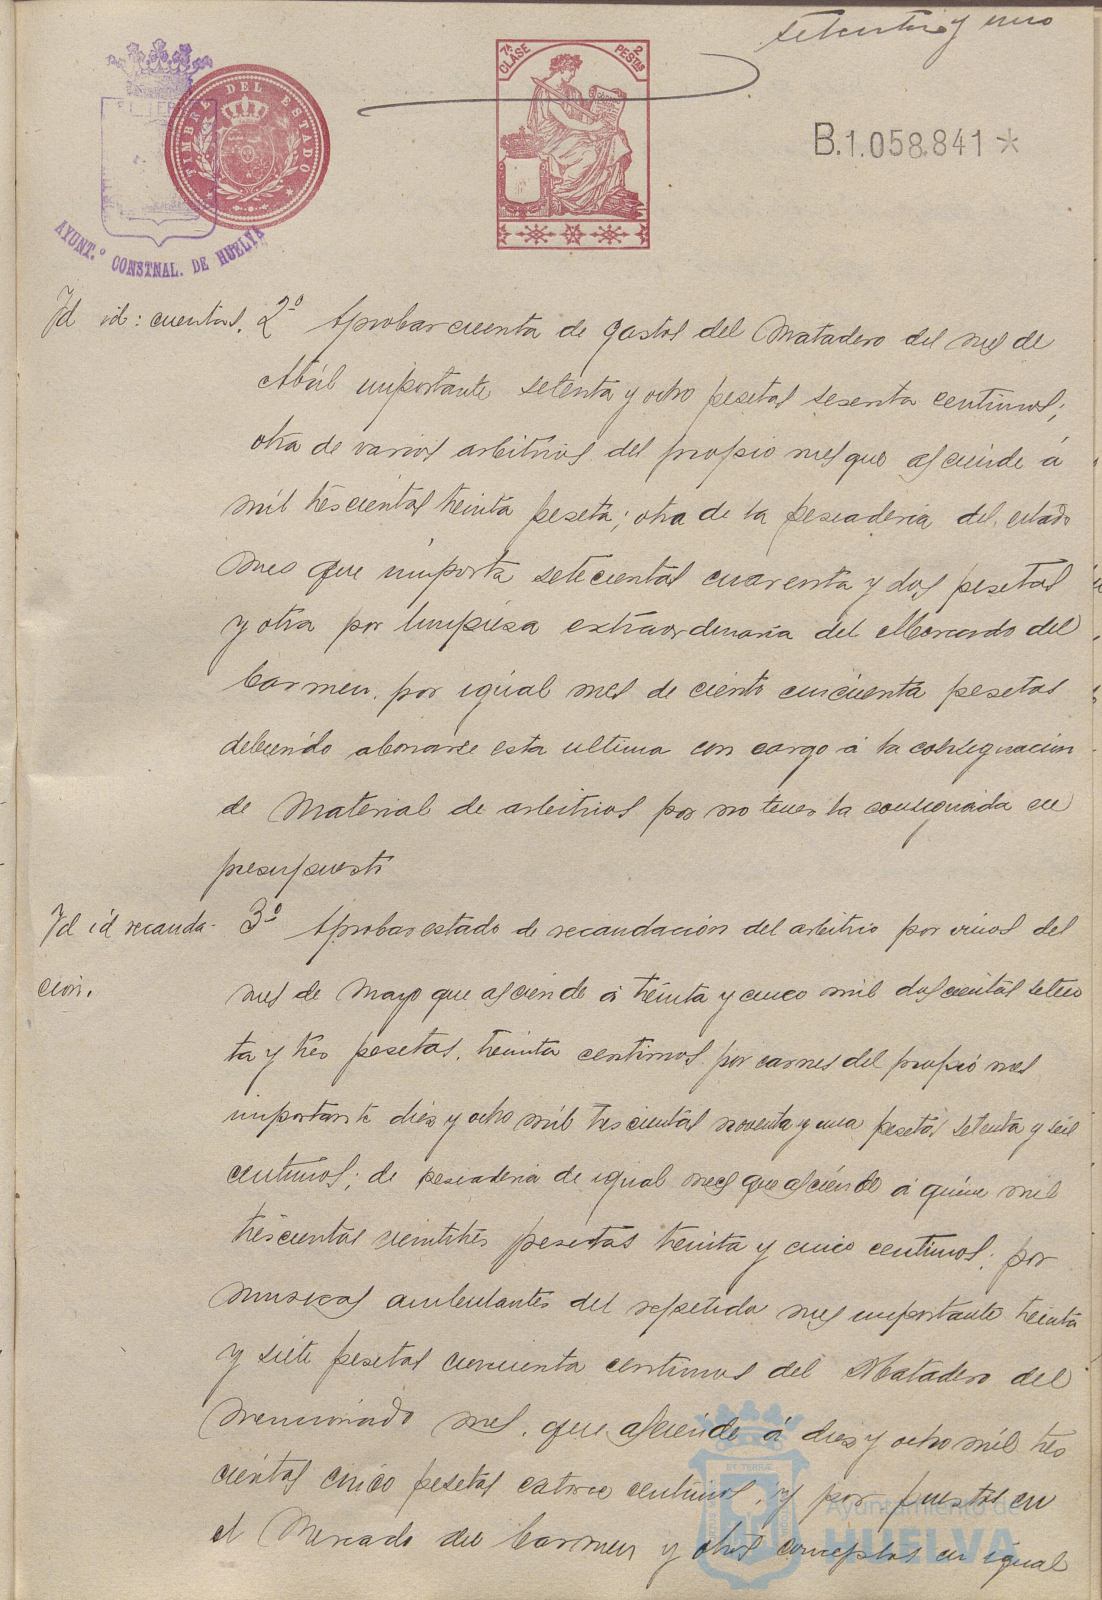 setenta y uno
7ª CLASE
2 PESTAS
TIMBRE DEL ESTADO
B.1.058.841*
AYUNT.º CONSTNAL. DE HUELVA
Id id: cuentas. 2º Aprobar cuenta de gastos del Matadero del mes de
Abril importante setenta y ocho pesetas sesenta centimos;
otra de varios arbitrios del propio mes que asciende á
mil trescientas treinta peseta; otra de la pescaderia del citado
mes que importa setecientas cuarenta y dos pesetas
y otra por limpieza extraordinaria del Mercado del
Carmen, por igual mes de ciento cincuenta pesetas
debiendo abonarse esta ultima con cargo á la consignacion
de Material de arbitrios por no tener la consignada en
presupuesto
Id id recauda- 3º Aprobar estado de recaudación del arbitrio por vinos del
cion. mes de Mayo que asciende á treinta y cinco mil doscientas seten
ta y tres pesetas, treinta centimos por carnes del propio mes
importante diez y ocho mil trescientas noventa y una pesetas setenta y seis
centimos; de pescaderia de igual mes que asciende á quince mil
trescientas veintitres pesetas treinta y cinco centimos; por
musicas ambulantes del repetido mes importante treinta
y siete pesetas cincuenta centimos del Matadero del
mencionado mes, que asciende á diez y ocho mil tres
cientas cinco pesetas catorce centimos; y por puestos en
el Mercado del Carmen y otros conceptos en igual
Ayuntamiento de
HUELVA